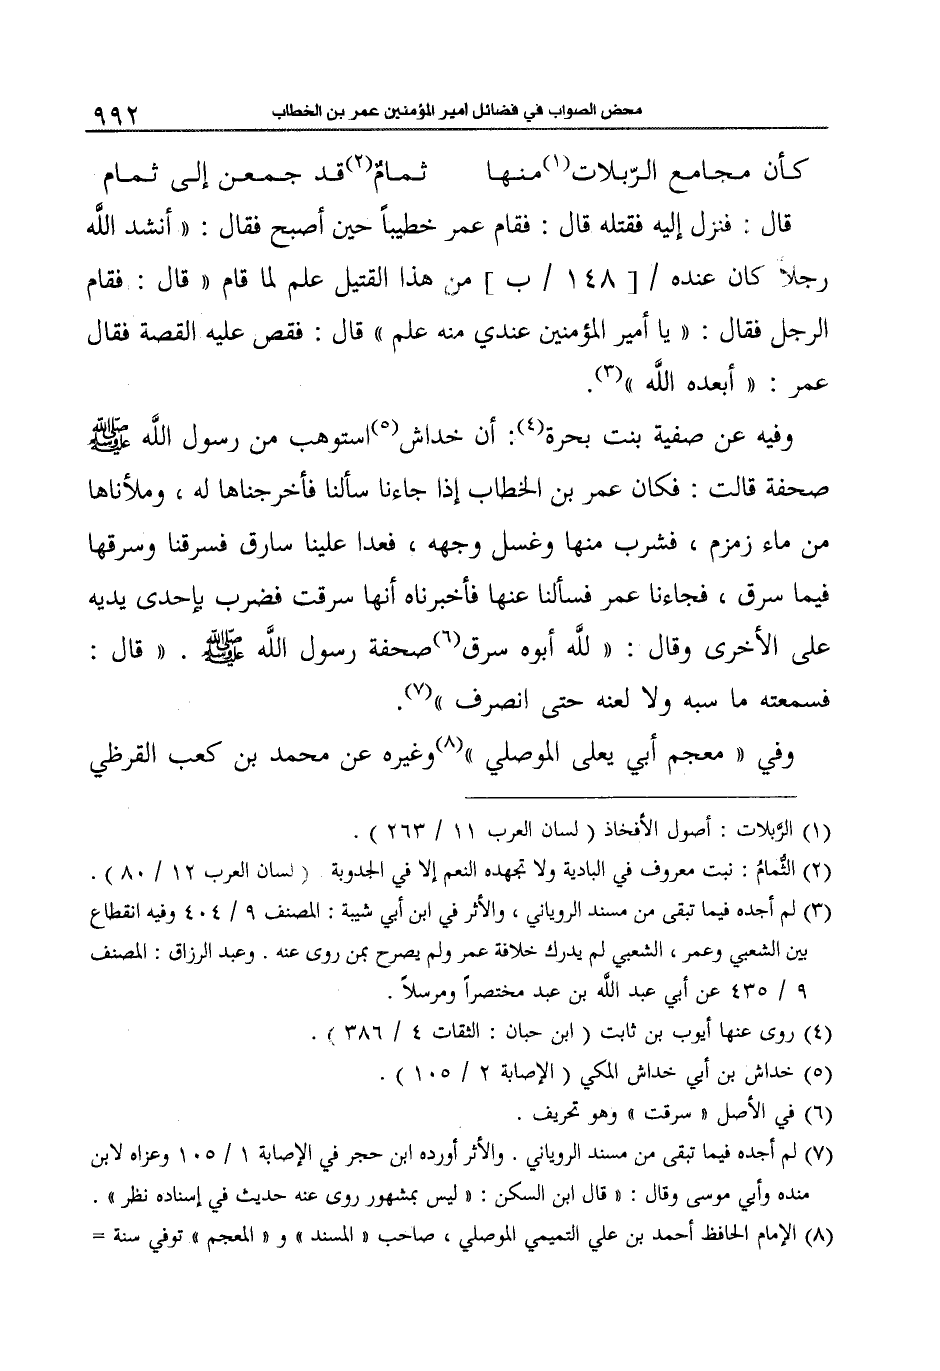 محض الصواب في فضائل أمير المؤمنين عمر بن الخطاب ٩٩٢
كأن مجامع الرّبلات(١)منها ثمامٌ(٢)قد جمعن إلى ثمام
قال : فنزل إليه فقتله قال : فقام عمر خطيباً حين أصبح فقال : « أنشد اللَّه
رجلاً كان عنده / [ ١٤٨ / ب ] من هذا القتيل علم لما قام « قال : فقام
الرجل فقال : « يا أمير المؤمنين عندي منه علم » قال : فقص عليه القصة فقال
عمر : « أبعده اللَّه »(٣).
وفيه عن صفية بنت بحرة(٤): أن خداش(٥)استوهب من رسول اللَّه ﷺ
صحفة قالت : فكان عمر بن الخطاب إذا جاءنا سألنا فأخرجناها له ، وملأناها
من ماء زمزم ، فشرب منها وغسل وجهه ، فعدا علينا سارق فسرقنا وسرقها
فيما سرق ، فجاءنا عمر فسألنا عنها فأخبرناه أنها سرقت فضرب بإحدى يديه
على الأخرى وقال : « للَّه أبوه سرق(٦)صحفة رسول اللَّه ﷺ . « قال :
فسمعته ما سبه ولا لعنه حتى انصرف »(٧).
وفي « معجم أبي يعلى الموصلي »(٨)وغيره عن محمد بن كعب القرظي
(١) الرَّبلات : أصول الأفخاذ ( لسان العرب ١١ / ٢٦٣ ) .
(٢) الثُّمامُ : نبت معروف في البادية ولا تجهده النعم إلا في الجدوبة ( لسان العرب ١٢ / ٨٠ ) .
(٣) لم أجده فيما تبقى من مسند الروياني ، والأثر في ابن أبي شيبة : المصنف ٩ / ٤٠٤ وفيه انقطاع
بين الشعبي وعمر ، الشعبي لم يدرك خلافة عمر ولم يصرح بمن روى عنه . وعبد الرزاق : المصنف
٩ / ٤٣٥ عن أبي عبد اللَّه بن عبد مختصراً ومرسلاً .
(٤) روى عنها أيوب بن ثابت ( ابن حبان : الثقات ٤ / ٣٨٦ ) .
(٥) خداش بن أبي خداش المكي ( الإصابة ٢ / ١٠٥ ) .
(٦) في الأصل « سرقت » وهو تحريف .
(٧) لم أجده فيما تبقى من مسند الروياني . والأثر أورده ابن حجر في الإصابة ١ / ١٠٥ وعزاه لابن
منده وأبي موسى وقال : « قال ابن السكن : « ليس بمشهور روى عنه حديث في إسناده نظر » .
(٨) الإمام الحافظ أحمد بن علي التميمي الموصلي ، صاحب « المسند » و « المعجم » توفي سنة =